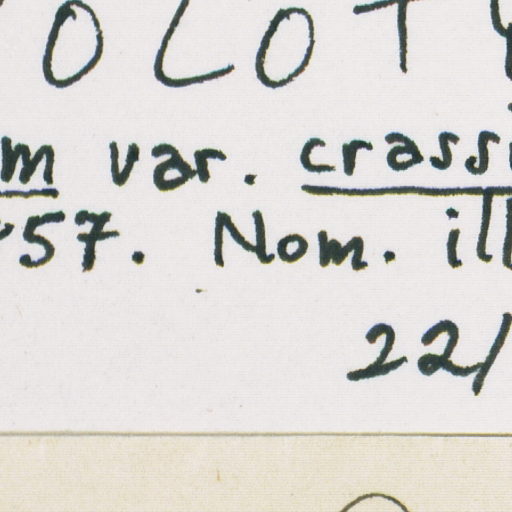 OLOT
m var. crassi
57. Nom. ill
22/